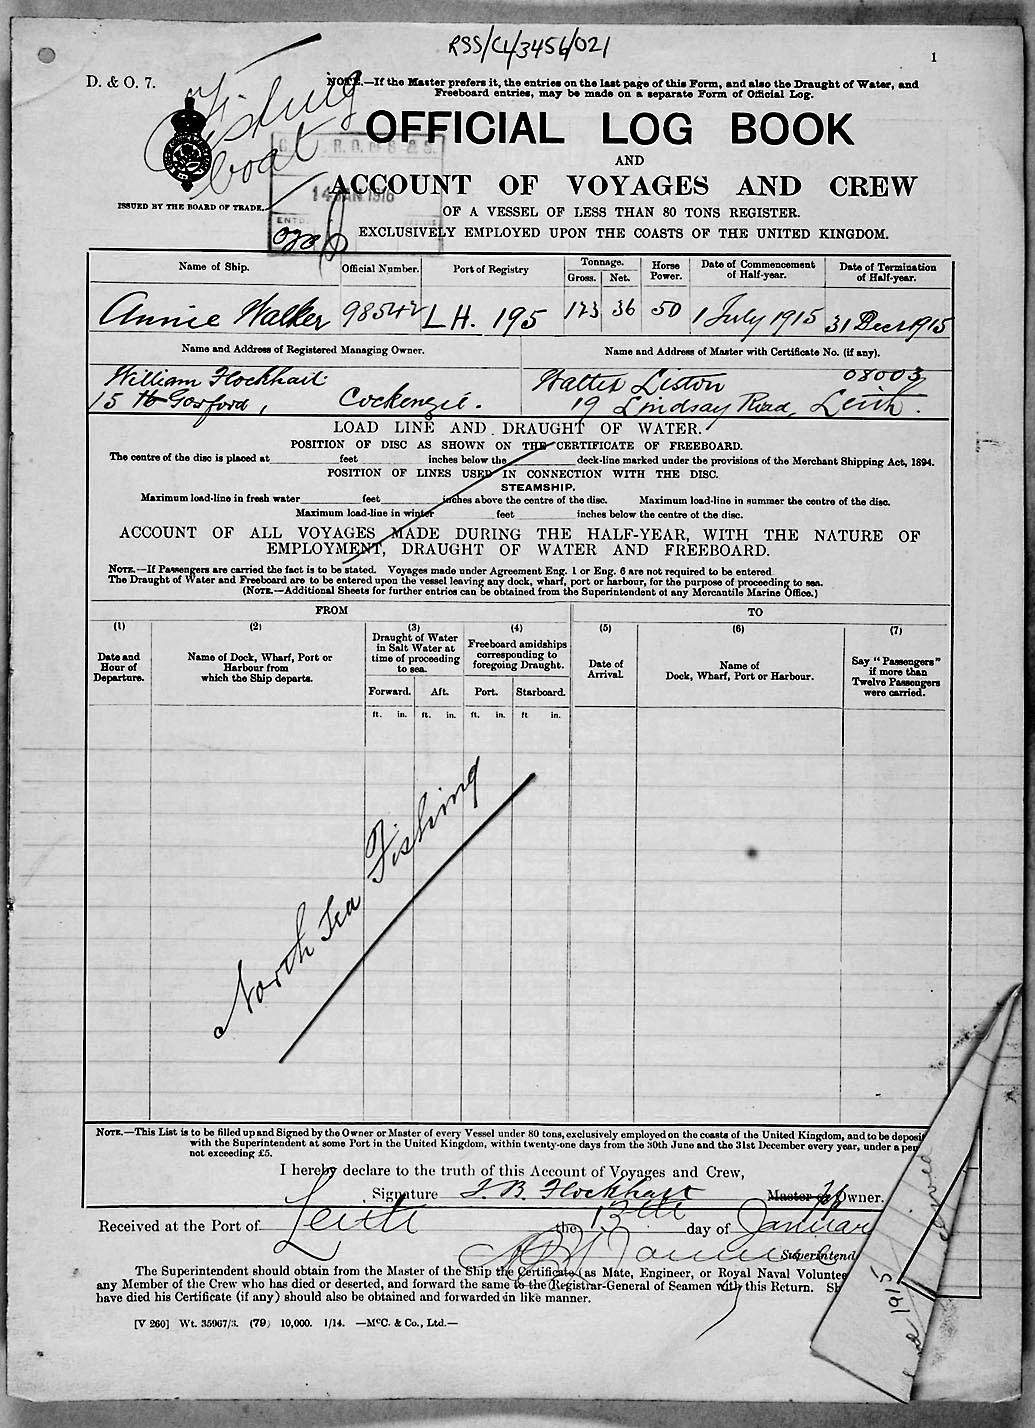 RSS/CL/3456/021
1
D. & O. 7.
NOTE.—If the Master prefers it, the entries on the last page of this Form, and also the Draught of Water, and
Freeboard entries, may be made on a separate Form of Official Log.
Fishing
boat
OFFICIAL LOG BOOK
AND
ACCOUNT OF VOYAGES AND CREW
R. O. OF S. & S.
14 JAN. 1916
ISSUED BY THE BOARD OF TRADE.
OF A VESSEL OF LESS THAN 80 TONS REGISTER.
EXCLUSIVELY EMPLOYED UPON THE COASTS OF THE UNITED KINGDOM.
Name of Ship. Official Number. Port of Registry Tonnage. Gross. Net. Horse Power. Date of Commencement of Half-year. Date of Termination of Half-year.
Annie Walker 98542 LH. 195 123 36 50 1 July 1915 31 Decr 1915
Name and Address of Registered Managing Owner. Name and Address of Master with Certificate No. (if any).
William Flockhart Walter Liston 08003
15 Gosford, Cockenzie. 19 Lindsay Road, Leith.
LOAD LINE AND DRAUGHT OF WATER.
POSITION OF DISC AS SHOWN ON THE CERTIFICATE OF FREEBOARD.
The centre of the disc is placed at feet inches below the deck-line marked under the provisions of the Merchant Shipping Act, 1894.
POSITION OF LINES USED IN CONNECTION WITH THE DISC.
STEAMSHIP.
Maximum load-line in fresh water feet inches above the centre of the disc. Maximum load-line in summer the centre of the disc.
Maximum load-line in winter feet inches below the centre of the disc.
ACCOUNT OF ALL VOYAGES MADE DURING THE HALF-YEAR, WITH THE NATURE OF
EMPLOYMENT, DRAUGHT OF WATER AND FREEBOARD.
NOTE.—If Passengers are carried the fact is to be stated. Voyages made under Agreement Eng. 1 or Eng. 6 are not required to be entered
The Draught of Water and Freeboard are to be entered upon the vessel leaving any dock, wharf, port or harbour, for the purpose of proceeding to sea.
(NOTE.—Additional Sheets for further entries can be obtained from the Superintendent of any Mercantile Marine Office.)
FROM TO
(1) (2) (3) (4) (5) (6) (7)
Date and Hour of Departure. Name of Dock, Wharf, Port or Harbour from which the Ship departs. Draught of Water in Salt Water at time of proceeding to sea. Freeboard amidships corresponding to foregoing Draught. Date of Arrival. Name of Dock, Wharf, Port or Harbour. Say "Passengers" if more than Twelve Passengers were carried.
Forward. Aft. Port. Starboard.
ft. in. ft. in. ft. in. ft in.
North Sea Fishing
NOTE.—This List is to be filled up and Signed by the Owner or Master of every Vessel under 80 tons, exclusively employed on the coasts of the United Kingdom, and to be deposi
with the Superintendent at some Port in the United Kingdom, within twenty-one days from the 30th June and the 31st December every year, under a pen
not exceeding £5.
I hereby declare to the truth of this Account of Voyages and Crew,
Signature J. B. Flockhart Master or Owner.
Received at the Port of Leith the 13th day of Januar
Superintend
The Superintendent should obtain from the Master of the Ship the Certificate (as Mate, Engineer, or Royal Naval Voluntee
any Member of the Crew who has died or deserted, and forward the same to the Registrar-General of Seamen with this Return. Sh
have died his Certificate (if any) should also be obtained and forwarded in like manner.
1915
[V 260] Wt. 35967/3. (79) 10,000. 1/14. —McC. & Co., Ltd.—